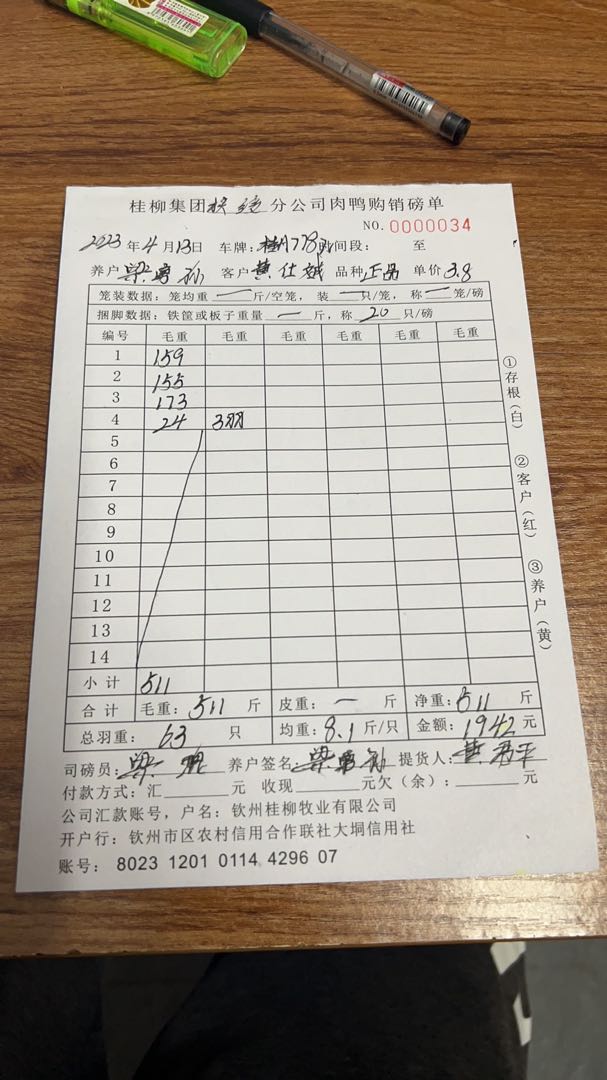 桂柳集团 分公司肉鸭购销磅单
NO. 0000034
2023年4月13日 车牌: 778 时间段: 至
养户 梁 客户 黄仕 品种 正品 单价 3.8
笼装数据: 笼均重 一 斤/空笼, 装 一 只/笼, 称 一 笼/磅
捆脚数据: 铁筐或板子重量 一 斤, 称 20 只/磅
编号 毛重 毛重 毛重 毛重 毛重 毛重
1 159
2 155
3 173
4 24 3羽
5
6
7
8
9
10
11
12
13
14
小计 511
合计 毛重: 511 斤 皮重: 一 斤 净重: 511 斤
总羽重: 63 只 均重: 8.1 斤/只 金额: 1942 元
①存根(白)
②客户(红)
③养户(黄)
司磅员: 梁 养户签名: 梁 提货人: 黄
付款方式: 汇 元 收现 元欠(余): 元
公司汇款账号, 户名: 钦州桂柳牧业有限公司
开户行: 钦州市区农村信用合作联社大垌信用社
账号: 8023 1201 0114 4296 07